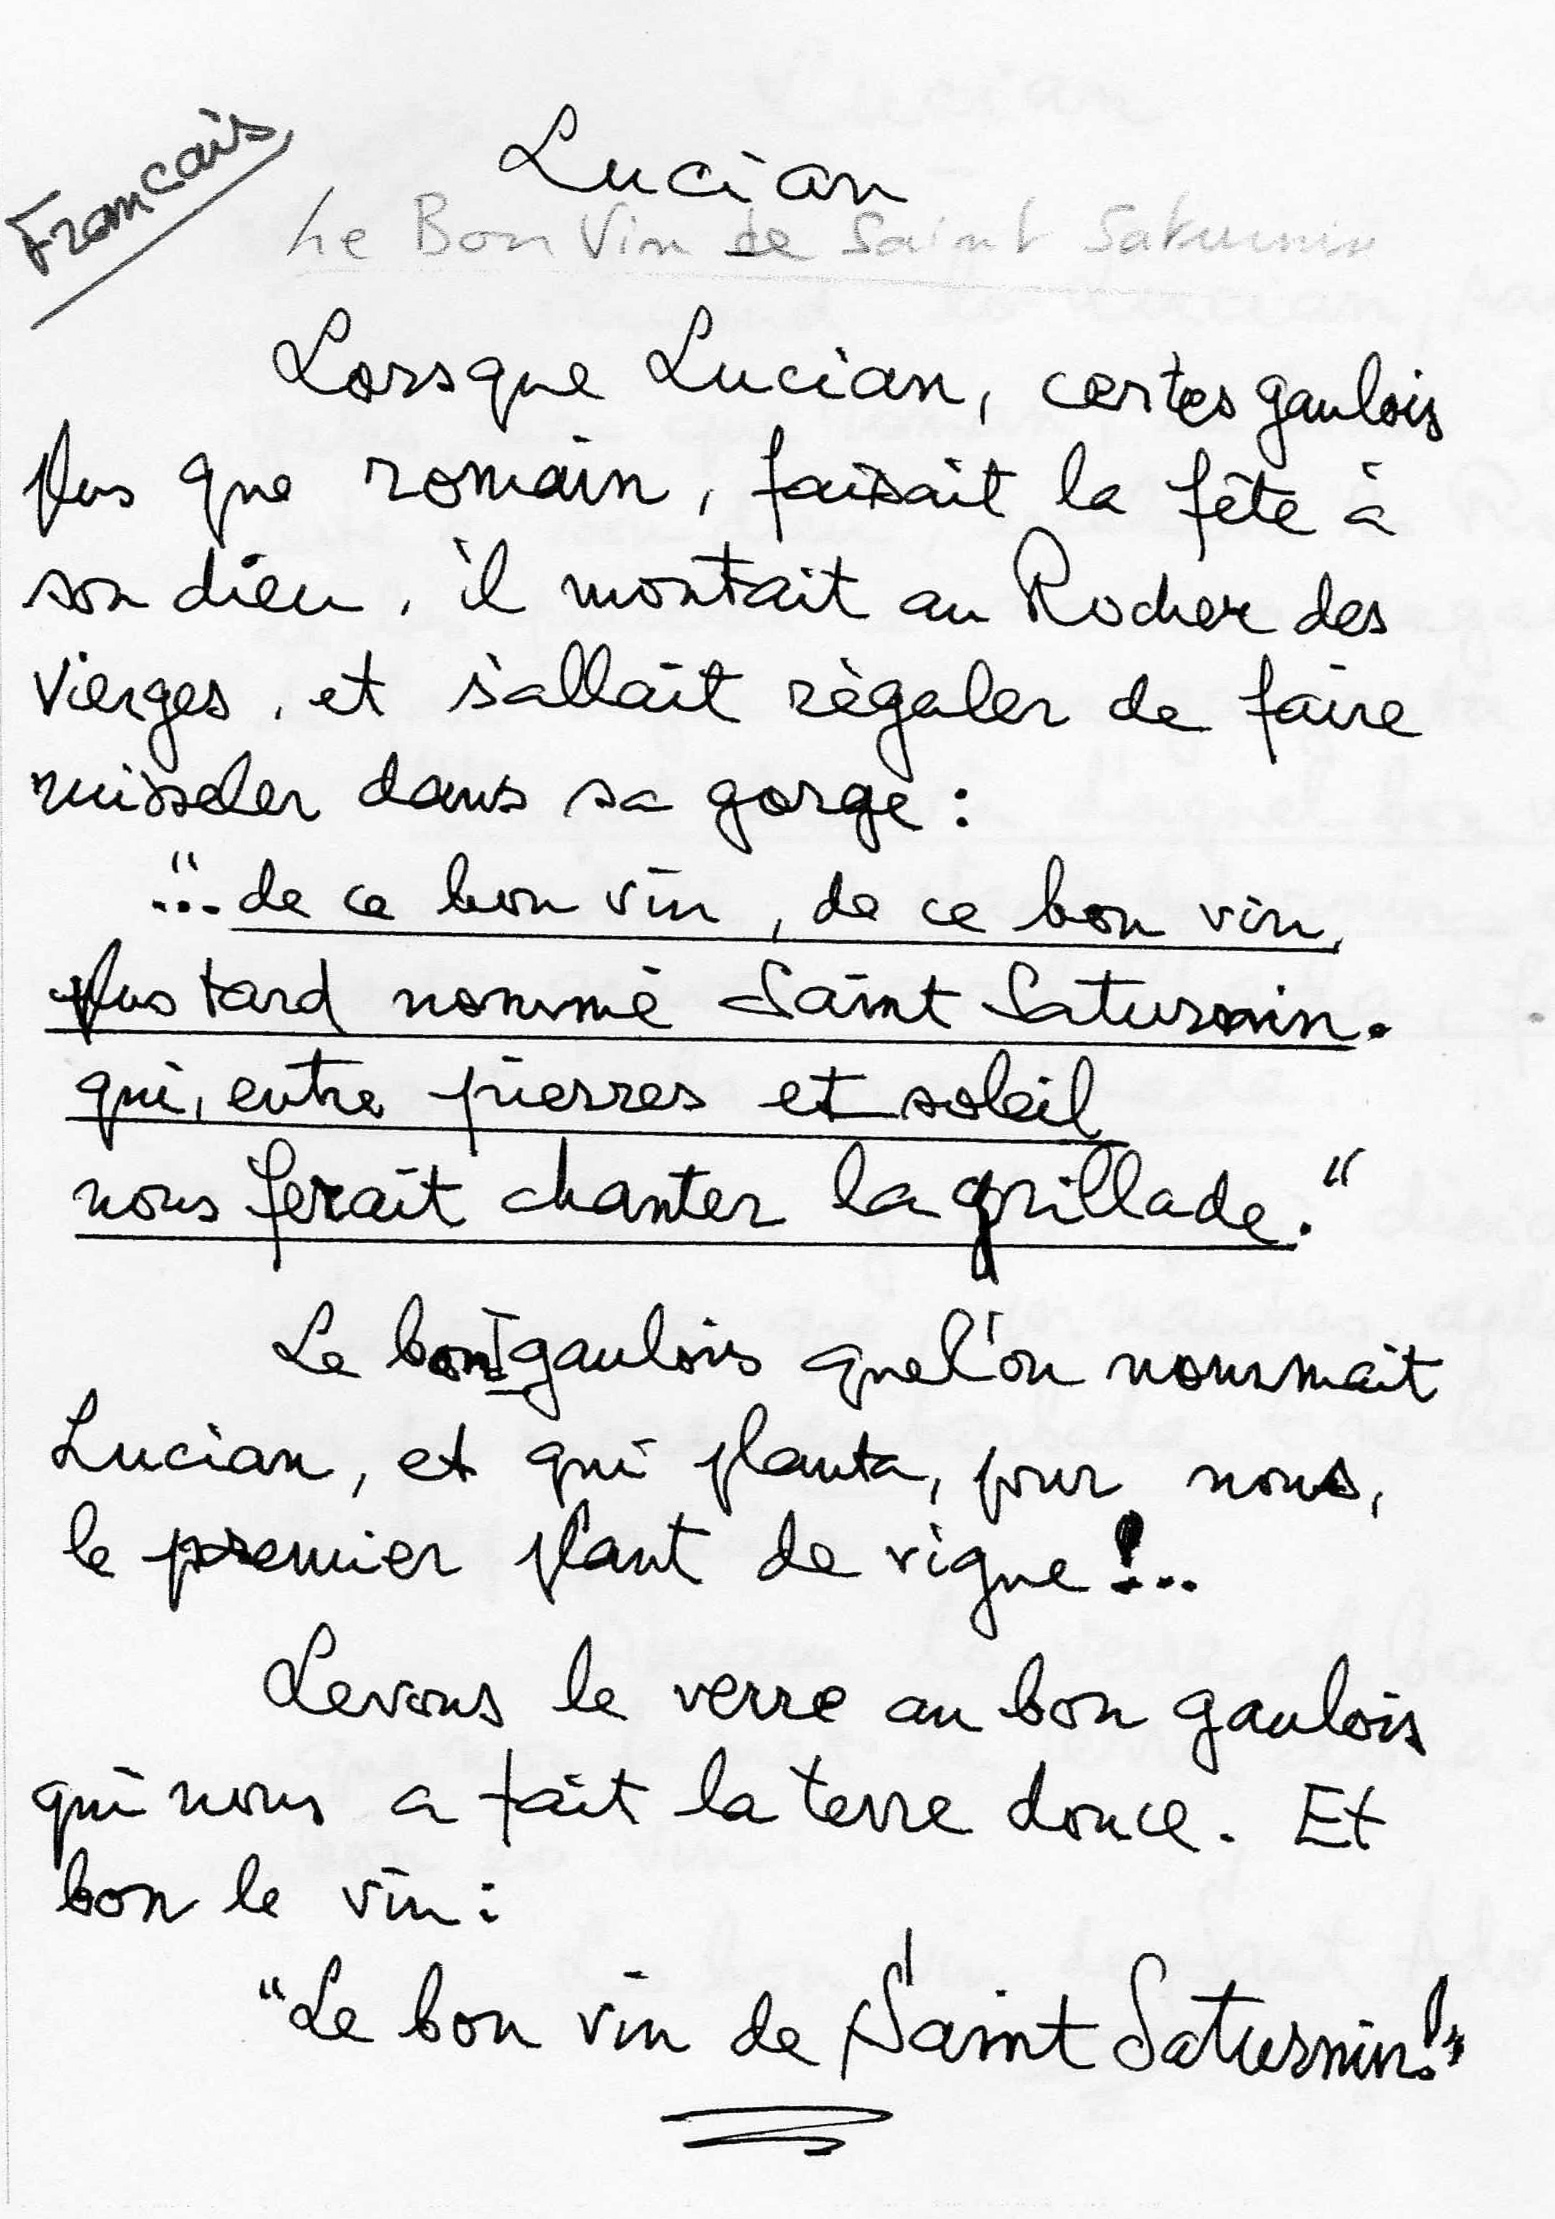 Francais
Lucian
Le Bon Vin de Saint Saturnin
Lorsque Lucian, certes gaulois
plus que romain, faisait la fête à
son dieu, il montait au Rocher des
Vierges, et s'allait régaler de faire
ruisseler dans sa gorge :
"... de ce bon vin, de ce bon vin,
plus tard nommé Saint Saturnin.
qui, entre pierres et soleil
nous ferait chanter la grillade."
Le bon gaulois que l'on nommait
Lucian, et qui planta, pour nous,
le premier plant de vigne !..
Levons le verre au bon gaulois
qui nous a fait la terre douce. Et
bon le vin :
"Le bon vin de Saint Saturnin!"